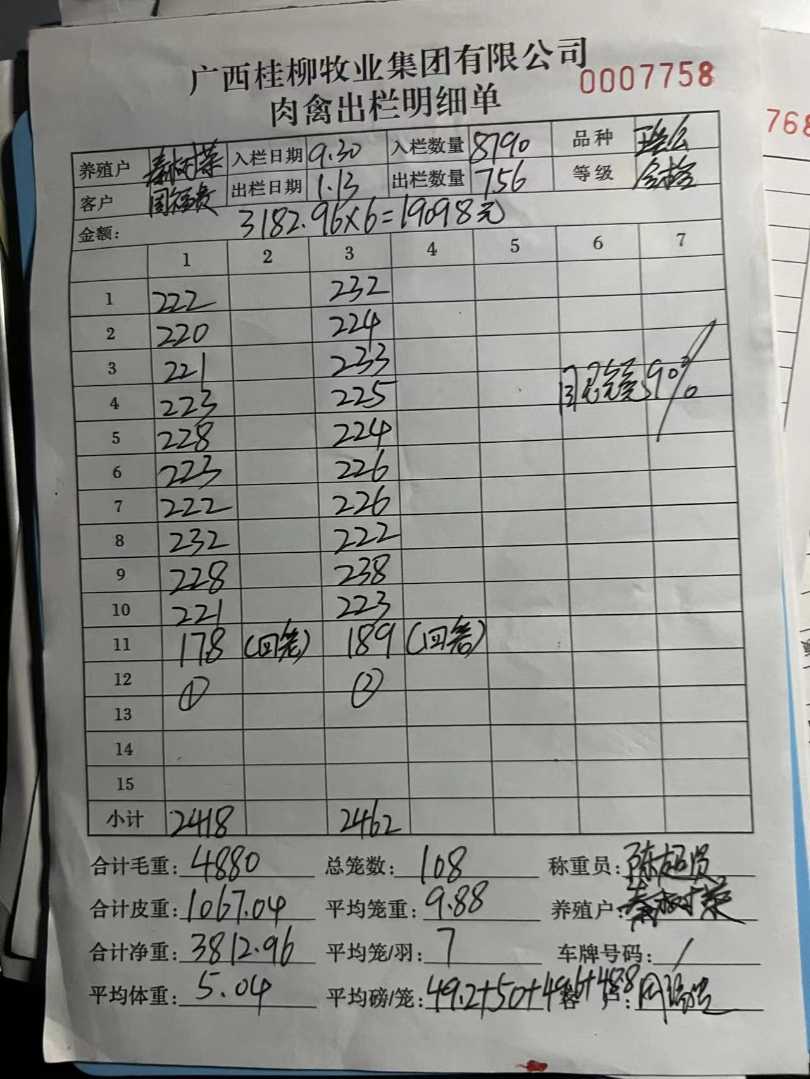 广西桂柳牧业集团有限公司
0007758
肉禽出栏明细单
768
养殖户 秦树荣 入栏日期 9.30 入栏数量 8790 品种
客户 出栏日期 1.13 出栏数量 756 等级 合格
金额: 3182.96×6=19098元
1 2 3 4 5 6 7
1 222 232
2 220 224
3 221 233
4 223 225 90%
5 228 224
6 223 226
7 222 226
8 232 222
9 228 238
10 221 223
11 178 (回笼) 189 (回笼)
12 ① ②
13
14
15
小计 2418 2462
合计毛重: 4880 总笼数: 108 称重员: 陈超贤
合计皮重: 1067.04 平均笼重: 9.88 养殖户: 秦树荣
合计净重: 3812.96 平均笼/羽: 7 车牌号码: /
平均体重: 5.04 平均磅/笼: 49.2+50+49.6+48.8 客户: